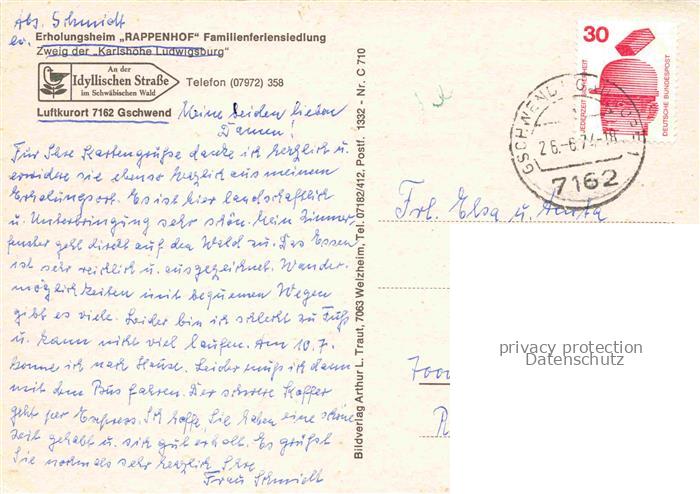 Abs. Schmidt
ev. Erholungsheim „RAPPENHOF“ Familienferiensiedlung
Zweig der „Karlshöhe Ludwigsburg“
An der
Idyllischen Straße
im Schwäbischen Wald
Telefon (07972) 358
Luftkurort 7162 Gschwend
Meine beiden lieben
Damen!
Für Ihre Kartengrüße danke ich herzlich u.
erwidere sie ebenso herzlich aus meinem
Erholungsort. Es ist hier landschaftlich
u. Unterbringung sehr schön. Mein Zimmer-
fenster geht direkt auf den Wald zu. Das Essen
ist sehr reichlich u. ausgezeichnet. Wander-
möglichkeiten mit bequemen Wegen
gibt es viele. Leider bin ich schlecht zu Fuß
u. kann nicht viel laufen. Am 10.7.
komme ich nach Hause. Leider muß ich dann
mit dem Bus fahren. Der schwere Koffer
geht per Express. Ich hoffe, Sie haben eine schöne
Zeit gehabt u. sich gut erholt. Es grüßt
Sie nochmals sehr herzlich Ihre
Frau Schmidt
Bildverlag Arthur L. Traut, 7063 Welzheim, Tel. 07182/412, Postf. 1332 - Nr. C 710
30
JEDERZEIT SICHERHEIT
DEUTSCHE BUNDESPOST
GSCHWEND
26.-6.74-18
7162
Frl. Elsa u.
700
privacy protection
Datenschutz